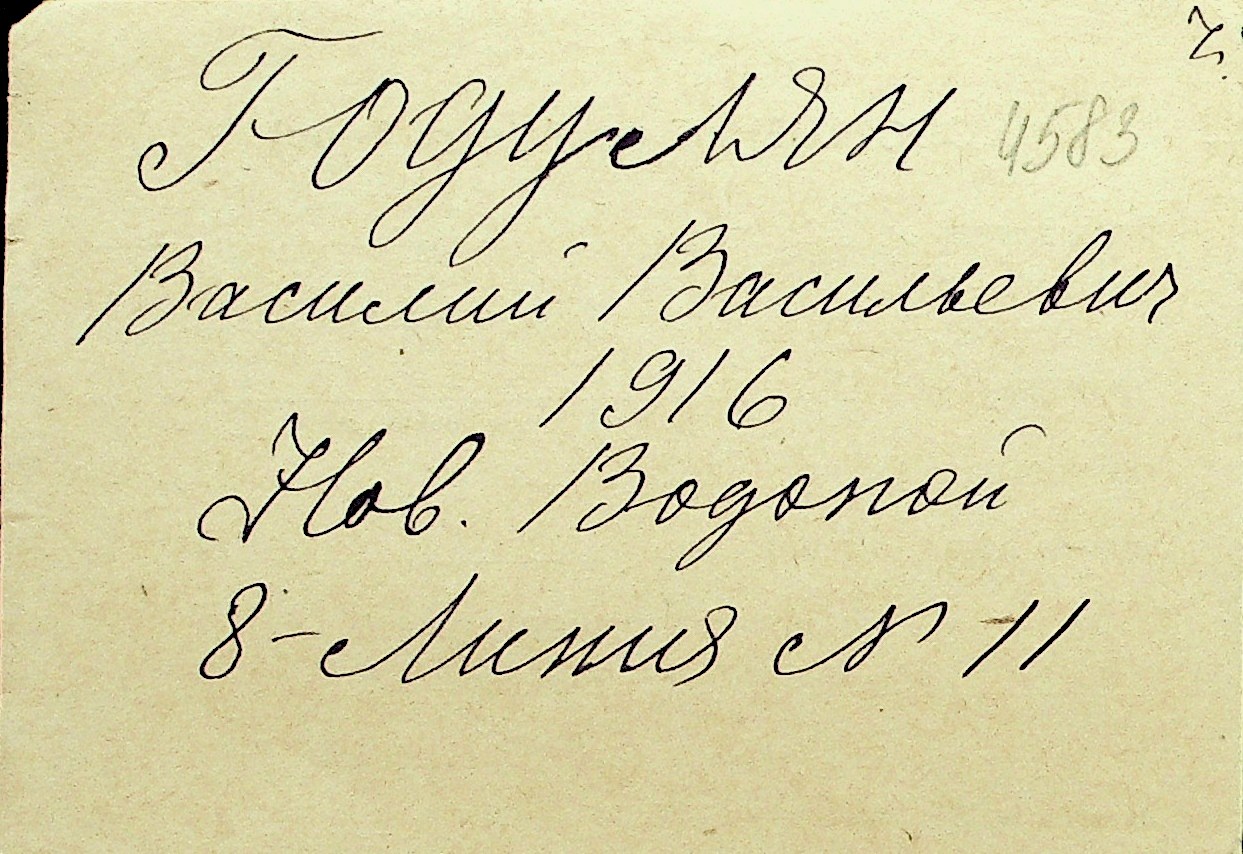 Годулян 4583
Василий Васильевич
1916
Нов. Водопой
8-Линия № 11